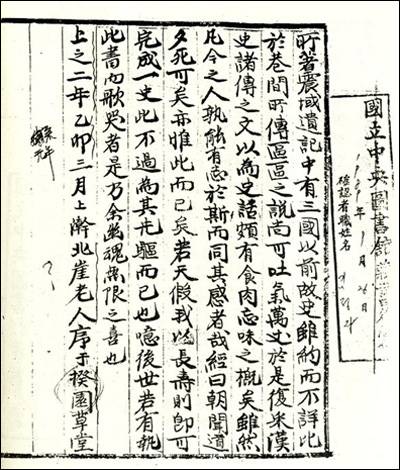 國立中央圖書館
確認者職姓名
所著震域遺記中有三國以前故史雖約而不詳比
於巷間所傳區區之說尚可吐氣萬丈於是復采漢
史諸傳之文以為史話頗有食肉忘味之概矣雖然
凡今之人孰能有志於斯而同其感者哉經曰朝聞道
夕死可矣亦惟此而已矣若天假我以長壽則即可
完成一史此不過為其先驅而已也噫後世若有執
此書而歌哭者是乃余幽魂無限之喜也
上之二年乙卯三月上澣北崖老人序于揆園草堂